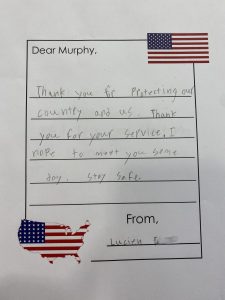 Dear Murphy,
Thank you for Protecting our
country and us. Thank
you for your service, I
hope to meet you some
day. Stay safe
From,
Lucien